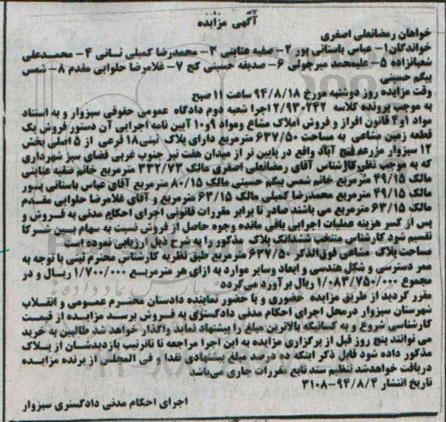 آگهی مزایده
خواهان رمضانعلی اصغری
خواندگان ۱- عباس باستانی پور ۲- صفیه عنابتی ۳- محمدرضا کمیلی ثانی ۴- محمدعلی
شعبانزاده ۵- علیمحمد میرچولی ۶- صدیقه حسینی کج ۷- غلامرضا حلوایی مقدم ۸- شمس
بیگم حسینی
وقت مزایده روز دوشنبه مورخ ۹۴/۸/۱۸ ساعت ۱۱ صبح
به موجب پرونده کلاسه ۲/۹۳۰۲۴۲ اجرا شعبه دوم دادگاه عمومی حقوقی سبزوار و به استناد
مواد ۱و۴ قانون افراز و فروش املاک مشاع ومواد ۹و۱۰ آیین نامه اجرایی آن دستور فروش یک
قطعه زمین مشاعی به مساحت ۶۳۷/۵۰ مترمربع دارای پلاک ثبتی ۱۸ فرعی از ۵ اصلی بخش
۱۲ سبزوار مزرعه فتح آباد واقع در پایین تر از میدان هفت تیر جنوب غربی فضای سبز شهرداری
که به موجب نظر کارشناس آقای رمضانعلی اصغری مالک ۳۳۲/۷۳ مترمربع خانم صفیه عنابتی
مالک ۴۹/۱۵ مترمربع خانم شمس بیگم حسینی مالک ۸۰/۱۵ مترمربع آقای عباس باستانی پور
مالک ۴۹/۱۵ مترمربع محمدرضا کمیلی مالک ۶۳/۱۵ مترمربع و آقای غلامرضا حلوایی مقدم
مالک ۶۳/۱۵ مترمربع می باشند صادر تا برابر مقررات قانونی اجرای احکام مدنی به فروش و
پس از کسر هزینه عملیات اجرایی باقی مانده وجوه حاصل از فروش نسبت به سهام بین شرکا
تقسیم شود کارشناس منتخب ششدانگ پلاک مذکور را به شرح ذیل ارزیابی نموده است
مساحت پلاک مشاعی فوق الذکر ۶۳۷/۵۰ مترمربع طبق نظریه کارشناس محترم ثبتی با توجه به
ممر دسترسی و شکل هندسی و ابعاد وسایر موارد به ازای هر مترمربع ۱/۷۰۰/۰۰۰ ریال و در
مجموع ۱/۰۸۳/۷۵۰/۰۰۰ ریال برآورد می گردد
مقرر گردید از طریق مزایده حضوری و با حضور نماینده دادستان محترم عمومی و انقلاب
شهرستان سبزوار درمحل اجرای احکام مدنی دادگستری به فروش برسد مزایده از قیمت
کارشناسی شروع و به کسانیکه بالاترین مبلغ را پیشنهاد نماید واگذار خواهد شد طالبین به خرید
می توانند پنج روز قبل از برگزاری مزایده به این اجرا مراجعه تا ترتیب بازدیدشان از پلاک
مذکور داده شود قابل ذکر اینکه ده درصد مبلغ پیشنهادی نقدا و فی المجلس از برنده مزایده
دریافت خواهدشد تنظیم سند تابع مقررات جاری می باشد
تاریخ انتشار ۹۴/۸/۴-۳۱۰۸
اجرای احکام مدنی دادگستری سبزوار